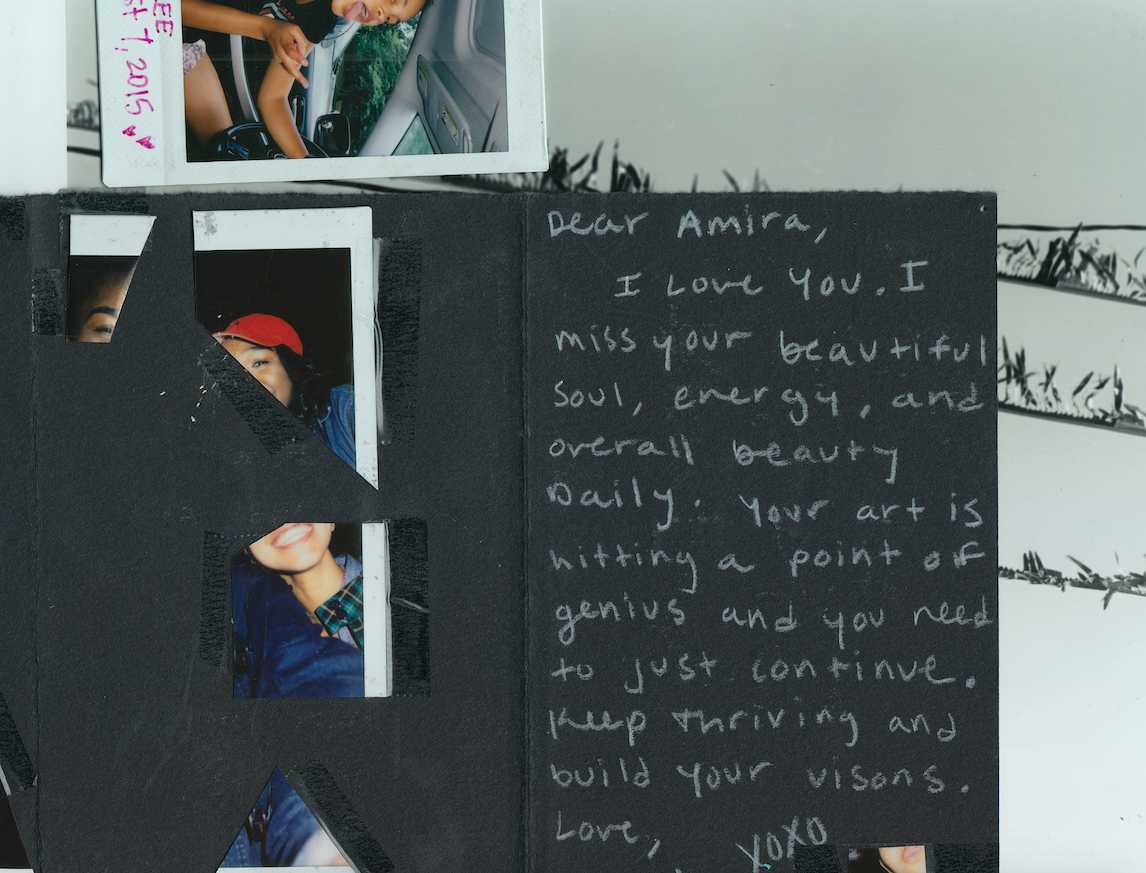 EE
st 7, 2015
Dear Amira,
I Love You. I
miss your beautiful
soul, energy, and
overall beauty
Daily. Your art is
hitting a point of
genius and you need
to just continue.
Keep thriving and
build your visons.
Love,
XOXO